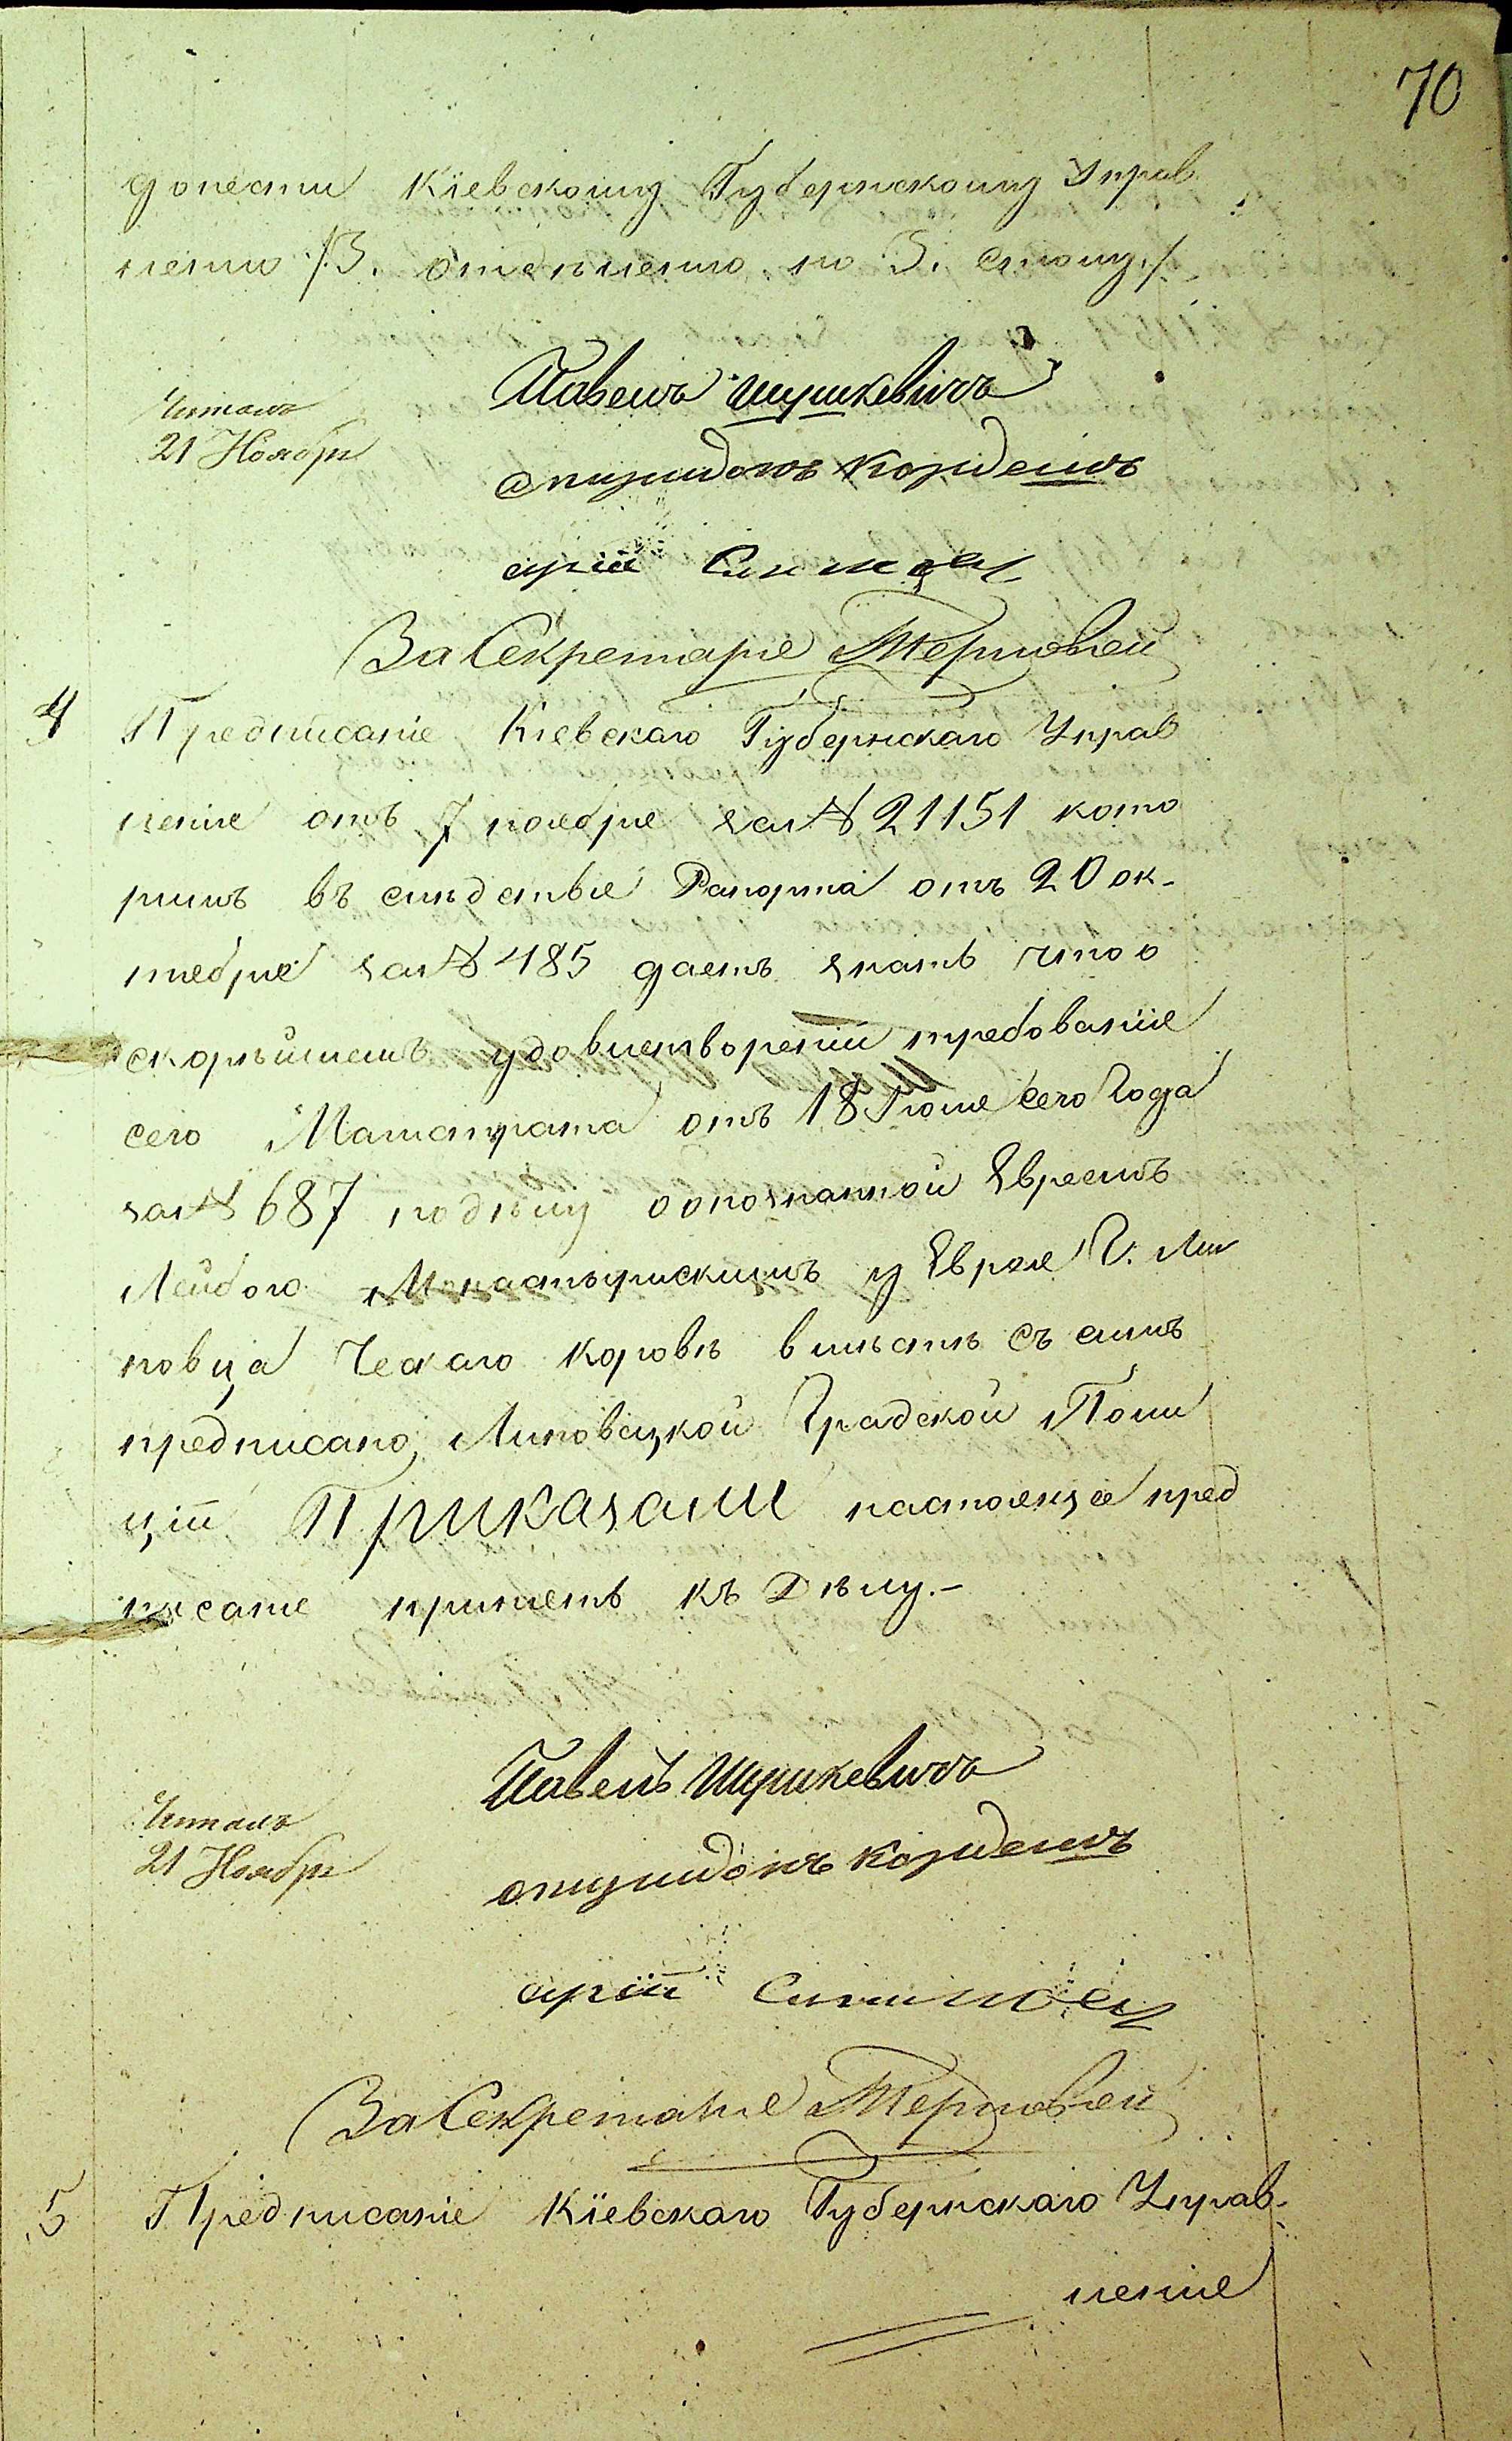 70
донести Кіевскому Губернскому Управ
ленію /3. отделенію по 3. столу./
Павелъ Шушкевичъ
Читалъ
21 Ноября
Спиридонъ Корделѣ
За Секретаря Терновой
4 Предписаніе Кіевскаго Губернскаго Управ
леніе отъ 7 ноября за № 21151 кото
римъ въ слѣдствіе Рапорта отъ 20 ок-
тебря за № 485 даетъ знать что о
скорѣйшемъ удовлетвореніи требованіе
сего Магистрата отъ 18 Іюле сего Года
за № 687 по дѣлу о опознанной Евреемъ
Лейбою Монастырскимъ у Еврея Г. Ли
повца Ческаго коровѣ вмѣстѣ съ симъ
предписано Липовецкой Градской Поли
ціи Приказали настоящее пред
писаніе пріинеть къ Дѣлу.-
Павелъ Шушкевичъ
Читалъ
21 Ноября
Спиридонъ Корделѣ
За Секретаря Терновой
5 Предписаніе Кіевскаго Губернскаго Управ-
леніе